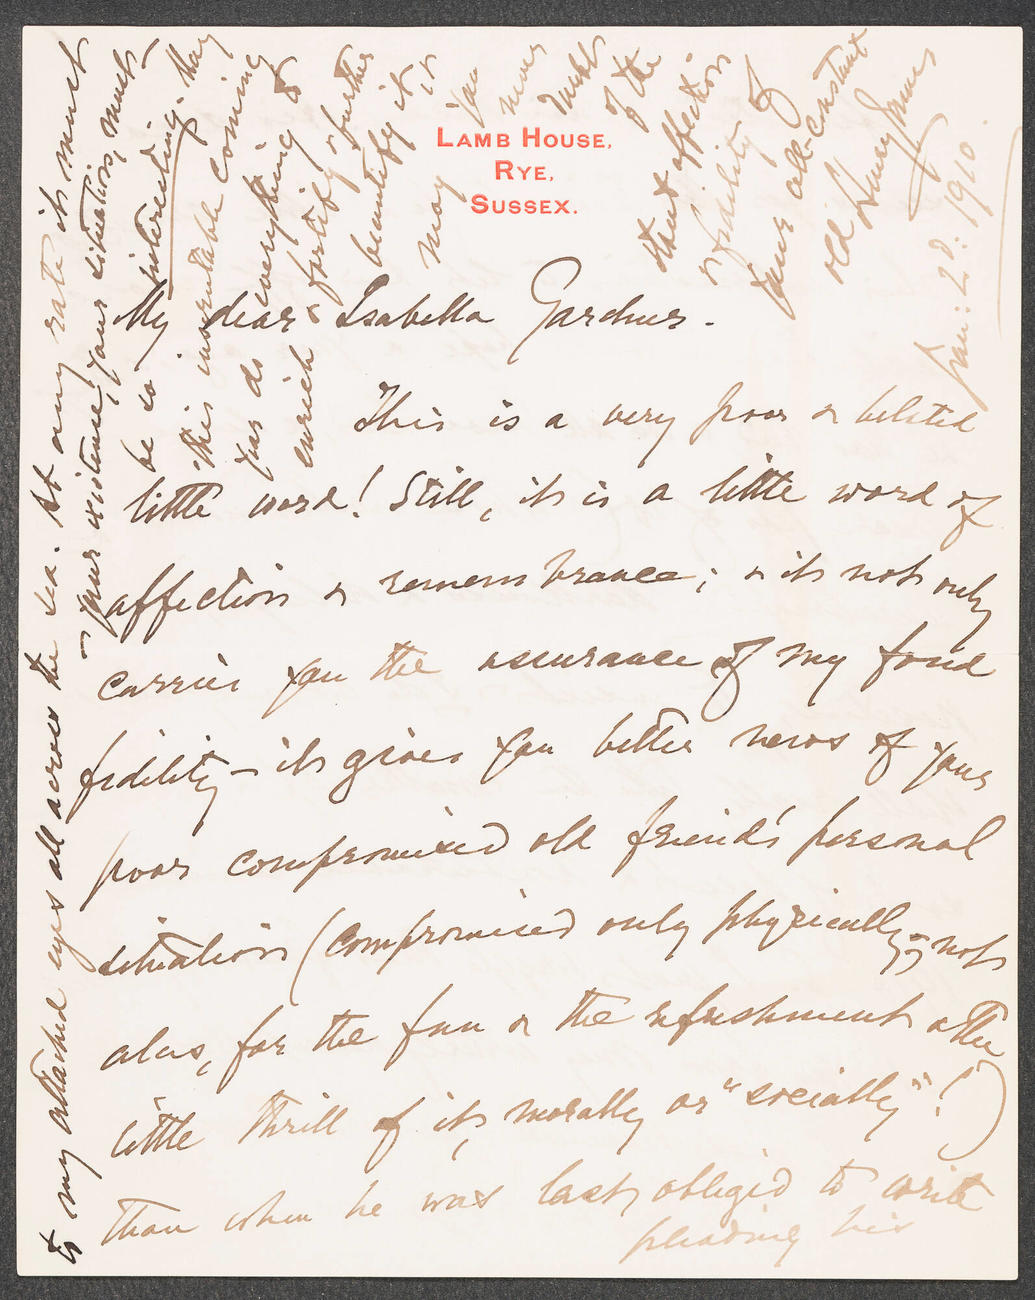 LAMB HOUSE,
RYE,
SUSSEX.
My dear Isabella Gardner.
This is a very poor & belated
little word! Still, it is a little word of
affection & remembrance; & it not only
carries you the assurance of my fond
fidelity — it gives you better news of your
poor compromised old friend's personal
situation (compromised only physically; not
alas, for the fun & the refreshment & the
little thrill of it, morally or "socially"!)
than when he was last obliged to write
pleading his
to my attached eyes all across the sea. At any rate it must
— your existence, your situation, must —
be so interesting. May
this inscrutable coming
year do everything to
enrich & fortify & further
beautify it, &
may you never
doubt of the
stout affection
& fidelity of
your all-constant
old Henry James
Jan: 2d: 1910.